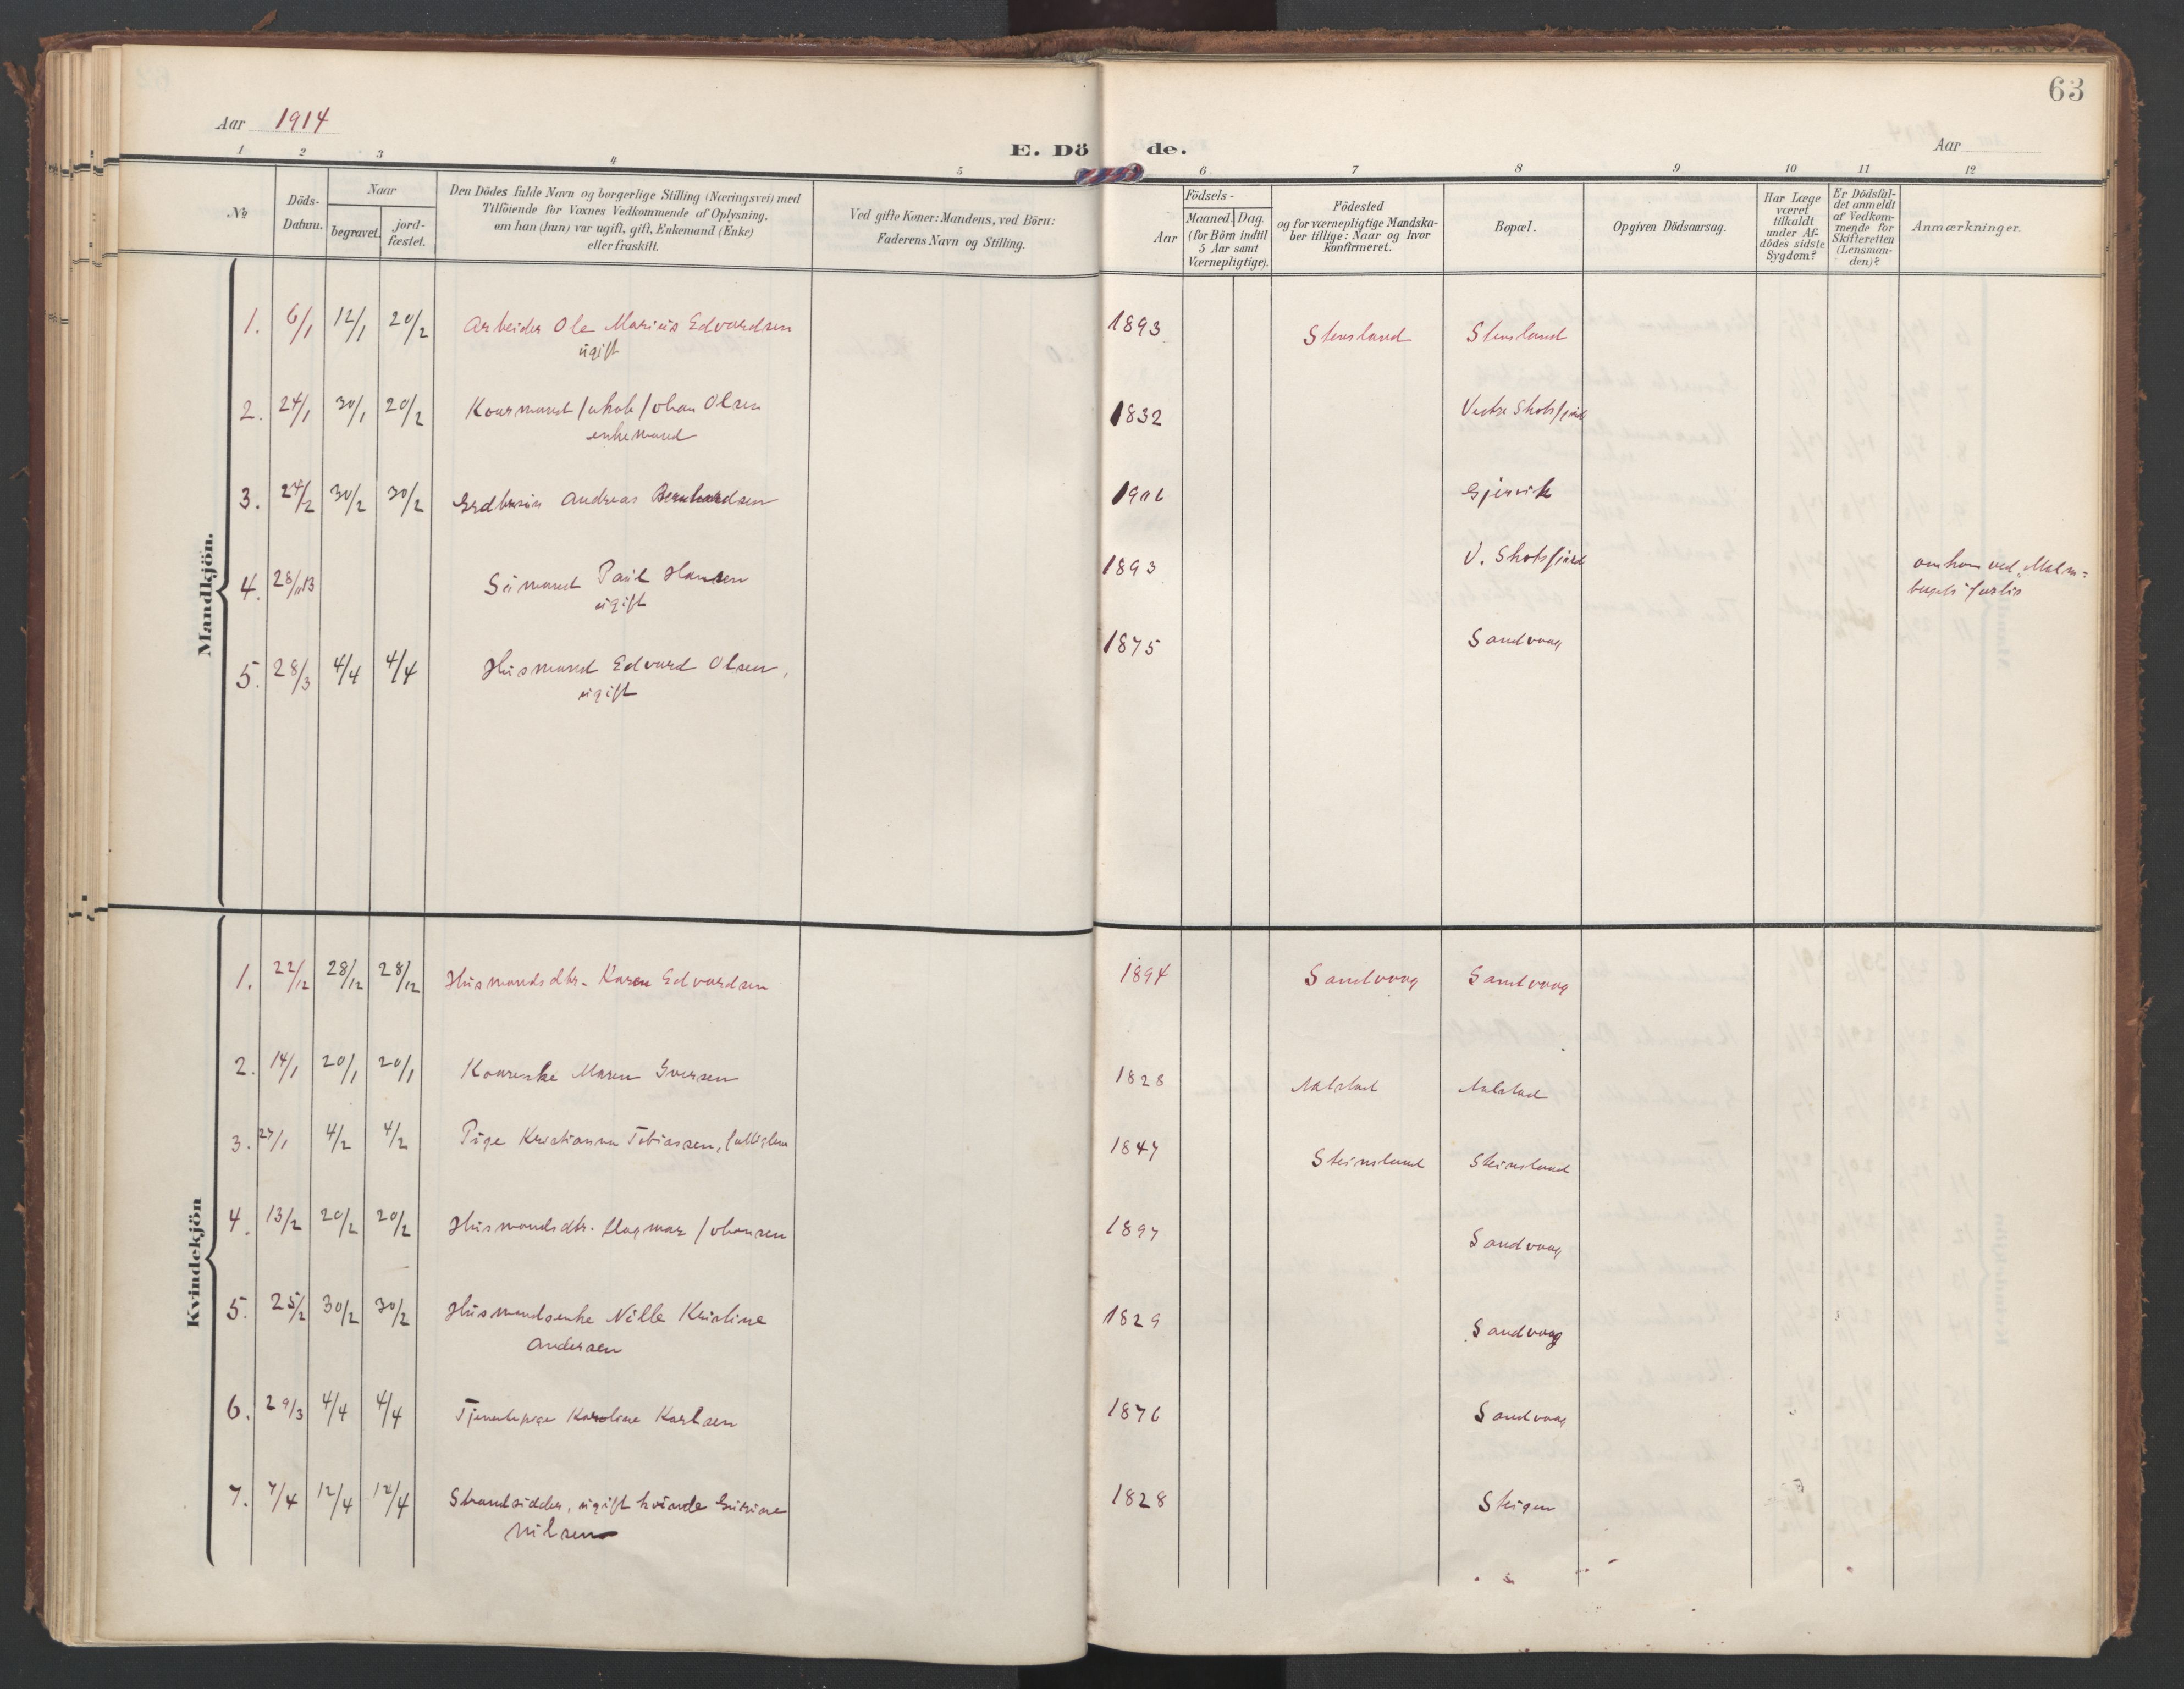 63
Aar 1914
Aar
E. Döde.
1 2 3 4 5 6 7 8 9 10 11 12
No
Döds-
Datum.
Naar
begravet.
jord-
fæstet.
Den Dödes fulde Navn og borgerlige Stilling (Næringsvei) med
Tilföiende for Voxnes Vedkommende af Oplysning,
om han (hun) var ugift, gift, Enkemand (Enke)
eller fraskilt.
Ved gifte Koner: Mandens, ved Börn:
Faderens Navn og Stilling.
Födsels-
Aar
Maaned. Dag.
(for Börn indtil
5 Aar samt
Værnepligtige).
Födested
og for værnepligtige Mandska-
ber tillige: Naar og hvor
Konfirmeret.
Bopæl.
Opgiven Dödsaarsag.
Har Læge
været
tilkaldt
under Af-
dödes sidste
Sygdom?
Er Dödsfal-
det anmeldt
af Vedkom-
mende for
Skifteretten
(Lensman-
den)?
Anmærkninger.
Mandkjön.
1. 6/1 12/1 20/2 Arbeider Ole Marius Edvardsen 1893 Stensland Stensland
ugift
2. 24/1 30/1 20/2 Kaarmand Jakob Johan Olsen 1832 Vestre Skotsfjord
enkemand
3. 24/2 30/2 30/2 Andreas Bernhardsen 1906 Gjersvik
4. 28/11 13 Sjömand Paul Hansen 1893 V. Skotsfjord omkom ved "Malm-
ugift forlis
5. 28/3 4/4 4/4 Husmand Edvard Olsen, 1875 Sandvaag
ugift
Kvindekjön
1. 22/12 28/12 28/12 Husmandsdtr. Karen Edvardsen 1894 Sandvaag Sandvaag
2. 14/1 20/1 20/1 Kaarenke Maren Iversen 1828 Aalstad Aalstad
3. 27/1 4/2 4/2 Pige Kristianna Tobiassen, fattiglem 1847 Steinsland Steinsland
4. 13/2 20/2 20/2 Husmandsdtr. Dagmar Johansen 1897 Sandvaag
5. 25/2 30/2 30/2 Husmandsenke Nille Kristine 1829 Sandvaag
Andersen
6. 29/3 4/4 4/4 Tjenestepige Karoline Karlsen 1876 Sandvaag
7. 7/4 12/4 12/4 Strandsidder, ugift kvinde 1828 Steigen
Nilsen